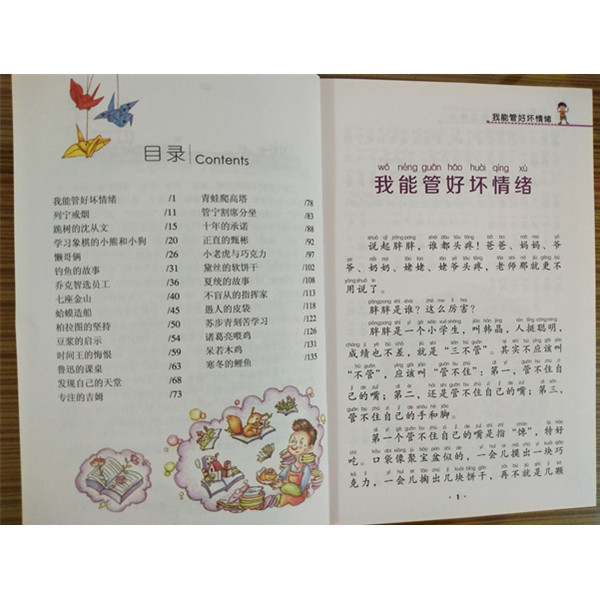 目录 Contents
我能管好坏情绪 /1
列宁戒烟 /11
跪树的沈从文 /15
学习象棋的小熊和小狗 /20
懒哥俩 /26
钓鱼的故事 /31
乔克智选员工 /36
七座金山 /40
蛤蟆造船 /45
柏拉图的坚持 /50
豆浆的启示 /54
时间王的悔恨 /59
鲁迅的课桌 /63
发现自己的天堂 /68
专注的吉姆 /73
青蛙爬高塔 /78
管宁割席分坐 /83
十年的承诺 /88
正直的甄彬 /92
小老虎与巧克力 /97
黛丝的软饼干 /102
夏统的故事 /108
不盲从的指挥家 /113
愚人的皮袋 /118
苏步青刻苦学习 /122
诸葛亮喂鸡 /126
呆若木鸡 /131
寒冬的鲤鱼 /135
我能管好坏情绪
wǒ néng guǎn hǎo huài qíng xù
我能管好坏情绪
说起胖胖，谁都头疼！爸爸、妈妈、爷
爷、奶奶、姥姥、姥爷头疼，老师那就更不
用说了。
胖胖是谁？这么厉害？
胖胖是一个小学生，叫韩晶，人挺聪明，
成绩也不差，就是“三不管”。其实不应该叫
“不管”，应该叫“管不住”：第一，管不住自
己的嘴；第二，还是管不住自己的嘴；第三，
管不住自己的手和脚。
第一个管不住自己的嘴是指“馋”，特好
吃。口袋像聚宝盆似的，一会儿摸出一块巧
克力，一会儿掏出几块饼干，再不就是几颗
·1·